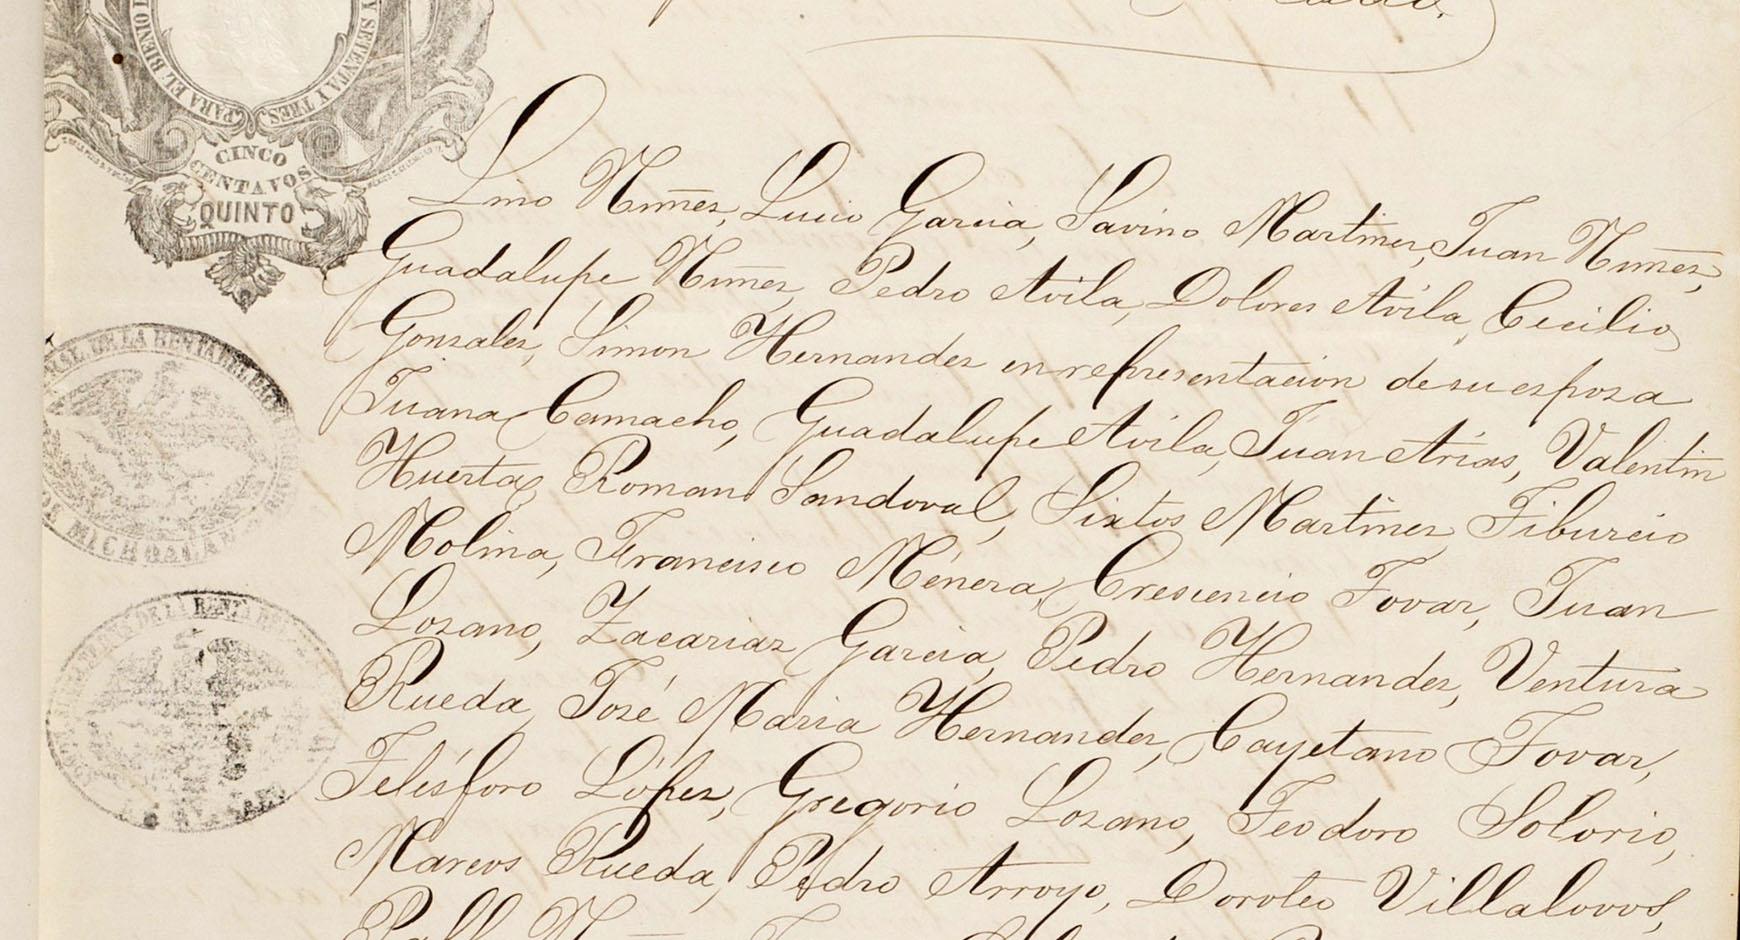 PARA EL BIENIO
Y SETENTA Y TRES
CINCO
CENTAVOS
QUINTO
DE LA RENTA DEL
DE MICHOACAN
DE LA RENTA DE
Lino Nuñes, Lucio Garcia, Savino Martines, Juan Nuñes,
Guadalupe Nuñes, Pedro Avila, Dolores Avila, Cecilio
Gonsales, Simon Hernandes en representacion de su esposa
Juana Camacho, Guadalupe Avila, Juan Arias, Valentin
Huerta, Roman Sandoval, Sixtos Martines, Tiburcio
Molina, Francisco Ménera, Crescencio Tovar, Juan
Losano, Zacarias Garcia, Pedro Hernandes, Ventura
Rueda, José Maria Hernandes, Cayetano Tovar,
Telésforo Lópes, Gregorio Losano, Teodoro Solorio,
Marcos Rueda, Pedro Arroyo, Doroteo Villalovos,